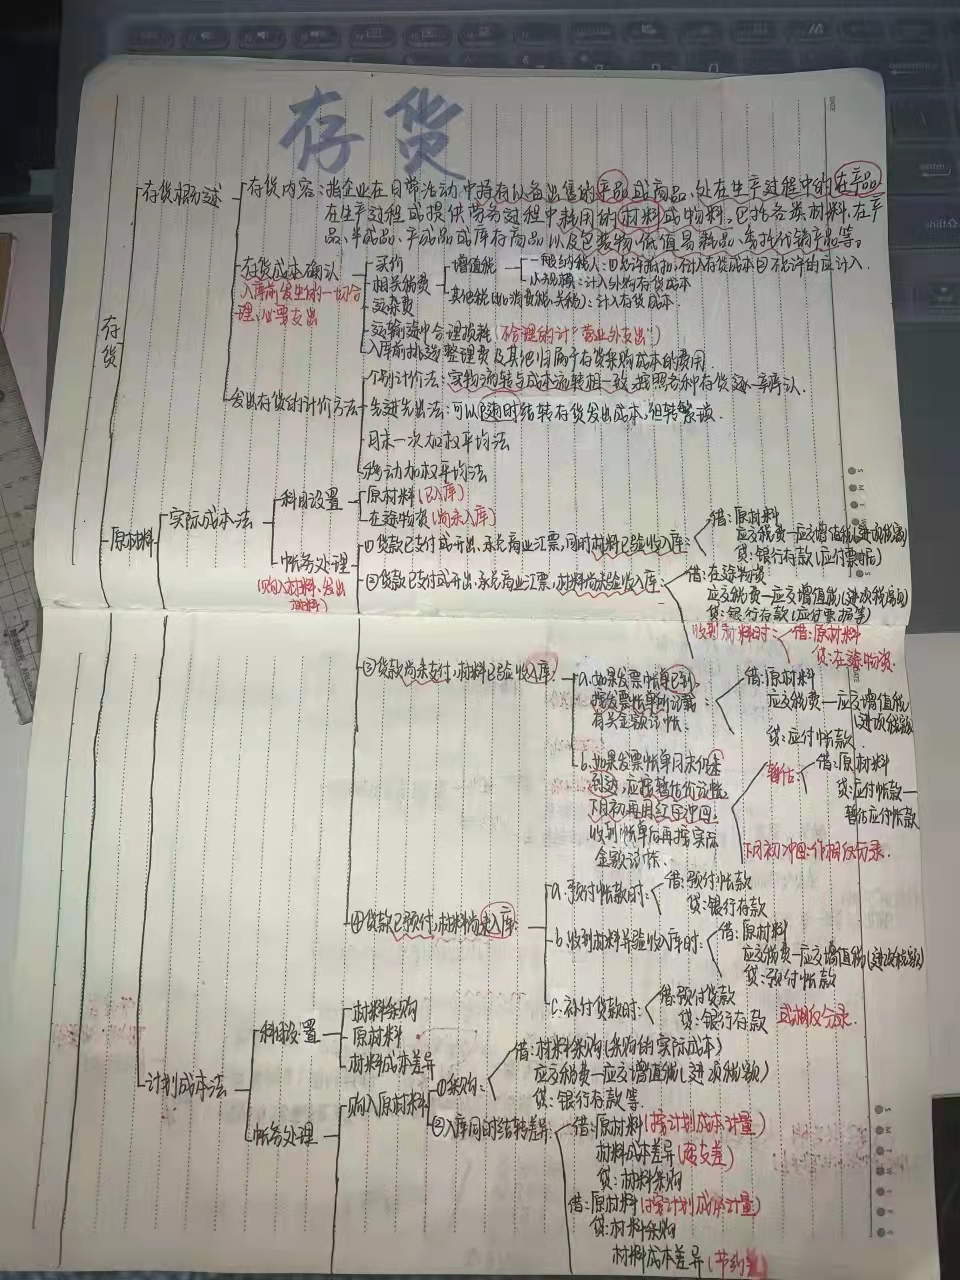 存货
存货概述
存货内容：指企业在日常活动中持有以备出售的产品或商品、处在生产过程中的在产品
在生产过程或提供劳务过程中耗用的材料或物料，包括各类材料、在产
品、半成品、产成品或库存商品以及包装物、低值易耗品、委托代销产品等。
存货成本确认
入库前发生的一切合
理、必要支出
买价
相关税费
增值税
一般纳税人：①允许抵扣，不计入存货成本②不允许的应计入.
小规模：计入外购存货成本
其他税(如消费税、关税)：计入存货成本.
运杂费
运输途中合理损耗(不合理的计"营业外支出")
入库前挑选整理费及其他归属于存货采购成本的费用.
发出存货的计价方法
个别计价法：实物流转与成本流转相一致，按照各种存货逐一辨认.
先进先出法：可以随时结转存货发出成本，但较繁琐.
月末一次加权平均法
移动加权平均法
存货
原材料
实际成本法
科目设置
原材料(已入库)
在途物资(尚未入库)
帐务处理
(购入材料、发出
材料)
①货款已支付或开出、承兑商业汇票，同时材料已验收入库：
借：原材料
应交税费—应交增值税(进项税额)
贷：银行存款(应付票据)
②货款已支付或开出、承兑商业汇票，材料尚未验收入库：
借：在途物资
应交税费—应交增值税(进项税额)
贷：银行存款(应付票据等)
收到材料时：
借：原材料
贷：在途物资.
③货款尚未支付，材料已验收入库：
a.如果发票帐单已到，
按发票帐单所记载
有关金额记帐.
借：原材料
应交税费—应交增值税
(进项税额)
贷：应付帐款.
b.如果发票帐单月末仍未
到达，应按暂估价记帐
下月初再用红字冲回，
收到帐单后再按实际
金额记帐.
暂估：
借：原材料
贷：应付帐款—
暂估应付帐款
下月初冲回：作相反分录.
④货款已预付，材料尚未入库：
a.预付帐款时：
借：预付帐款
贷：银行存款
b.收到材料并验收入库时：
借：原材料
应交税费—应交增值税(进项税额)
贷：预付帐款
c.补付货款时：
借：预付货款
贷：银行存款
或相反分录.
计划成本法
科目设置
材料采购
原材料
材料成本差异
帐务处理
购入原材料
①采购：
借：材料采购(采购的实际成本)
应交税费—应交增值税(进项税额)
贷：银行存款等.
②入库同时结转差异：
借：原材料(按计划成本计量)
材料成本差异(超支差)
贷：材料采购
借：原材料(按计划成本计量)
贷：材料采购
材料成本差异(节约差)